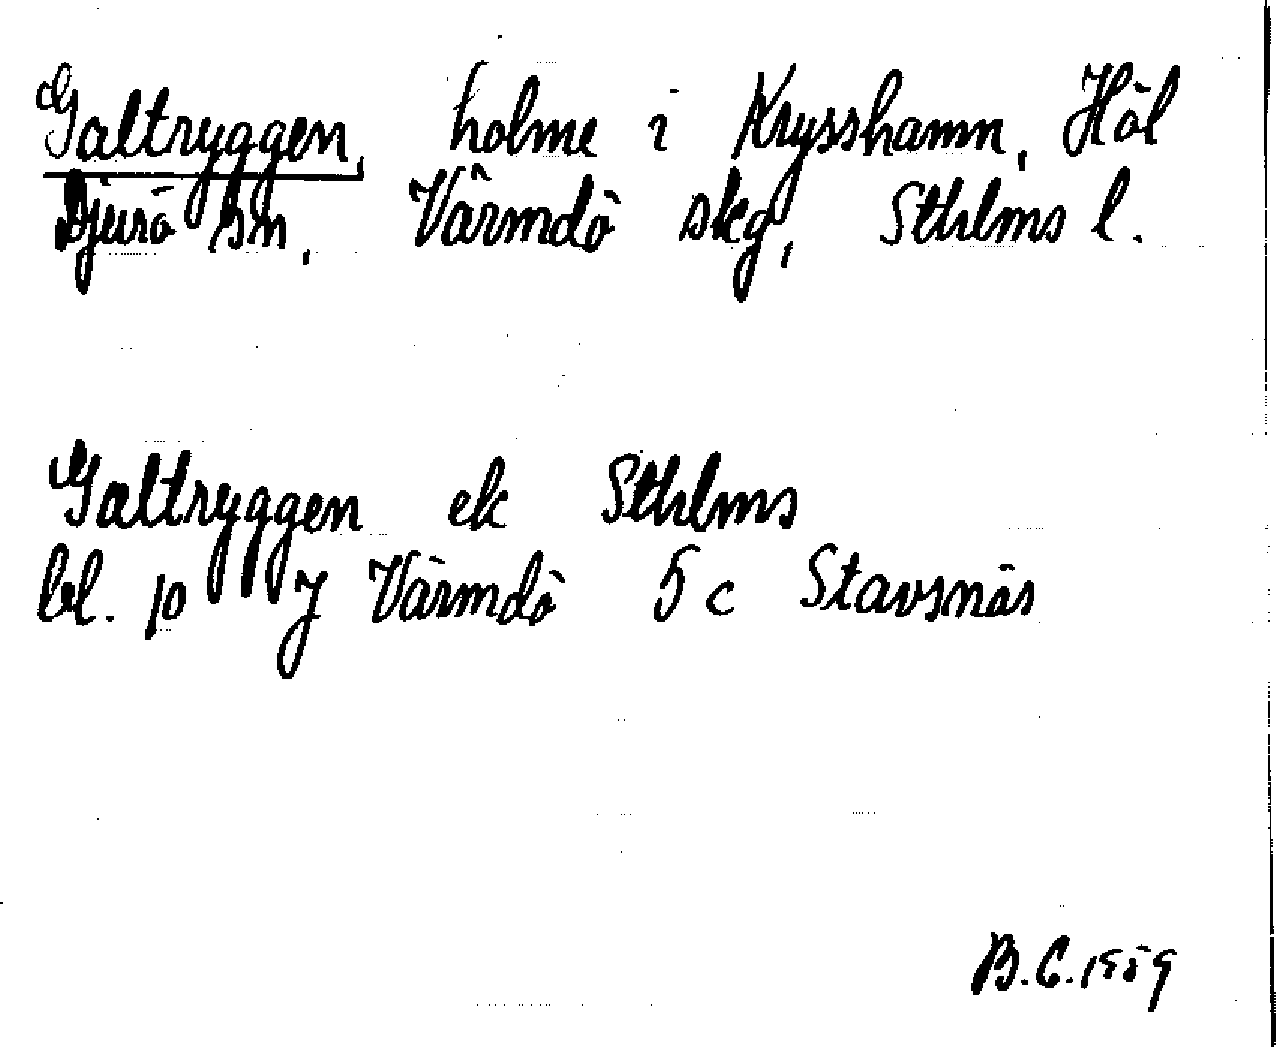 Galtryggen, holme i Krysshamn, Höl
Djurö sn, Värmdö skg, Sthlms l.
Galtryggen ek Sthlms
bl. 10 Y Värmdö 5 c Stavsnäs
B.C. 1959